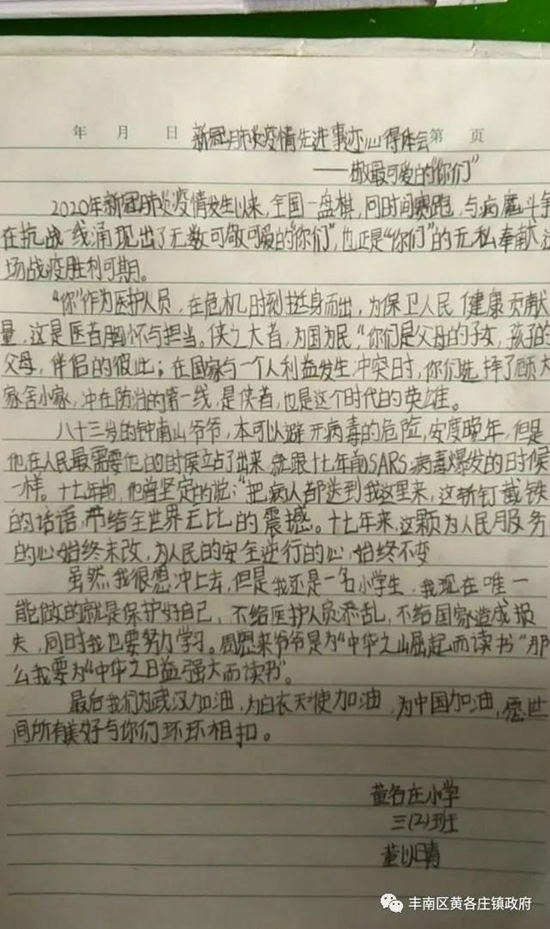 年 月 日 新冠肺炎疫情先进事迹心得体会 第 页
——献最可爱的"你们"
2020年新冠肺炎疫情发生以来,全国一盘棋,同时间赛跑,与病魔斗争
在抗战一线涌现出了无数可敬可爱的"你们",也正是"你们"的无私奉献,这
场战疫胜利可期。
"你"作为医护人员,在危机时刻挺身而出,为保卫人民健康贡献
量,这是医者胸怀与担当。侠之大者,为国为民,"你们是父母的子女,孩子的
父母,伴侣的彼此;在国家与个人利益发生冲突时,你们选择了顾大
家舍小家,冲在防治的第一线,是侠者,也是这个时代的英雄。
八十三岁的钟南山爷爷,本可以避开病毒的危险,安度晚年,但是
他在人民最需要他的时候站了出来,就跟十七年前SARS病毒爆发的时候
一样。十七年前,他曾坚定的说:"把病人都送到我这里来,这斩钉截铁
的话语,带给全世界无比的震撼。十七年来,这颗为人民服务
的心始终未改,为人民的安全逆行的心,始终不变
虽然我很想冲上去,但是我还是一名小学生,我现在唯一
能做的就是保护好自己,不给医护人员添乱,不给国家造成损
失,同时我也要努力学习。周恩来爷爷是为"中华之崛起而读书"那
么我要为"中华之日益强大而读书"。
最后我们为武汉加油,为白衣天使加油,为中国加油,愿世
间所有美好与你们环环相扣。
董各庄小学
三(2)班
董以晴
丰南区黄各庄镇政府